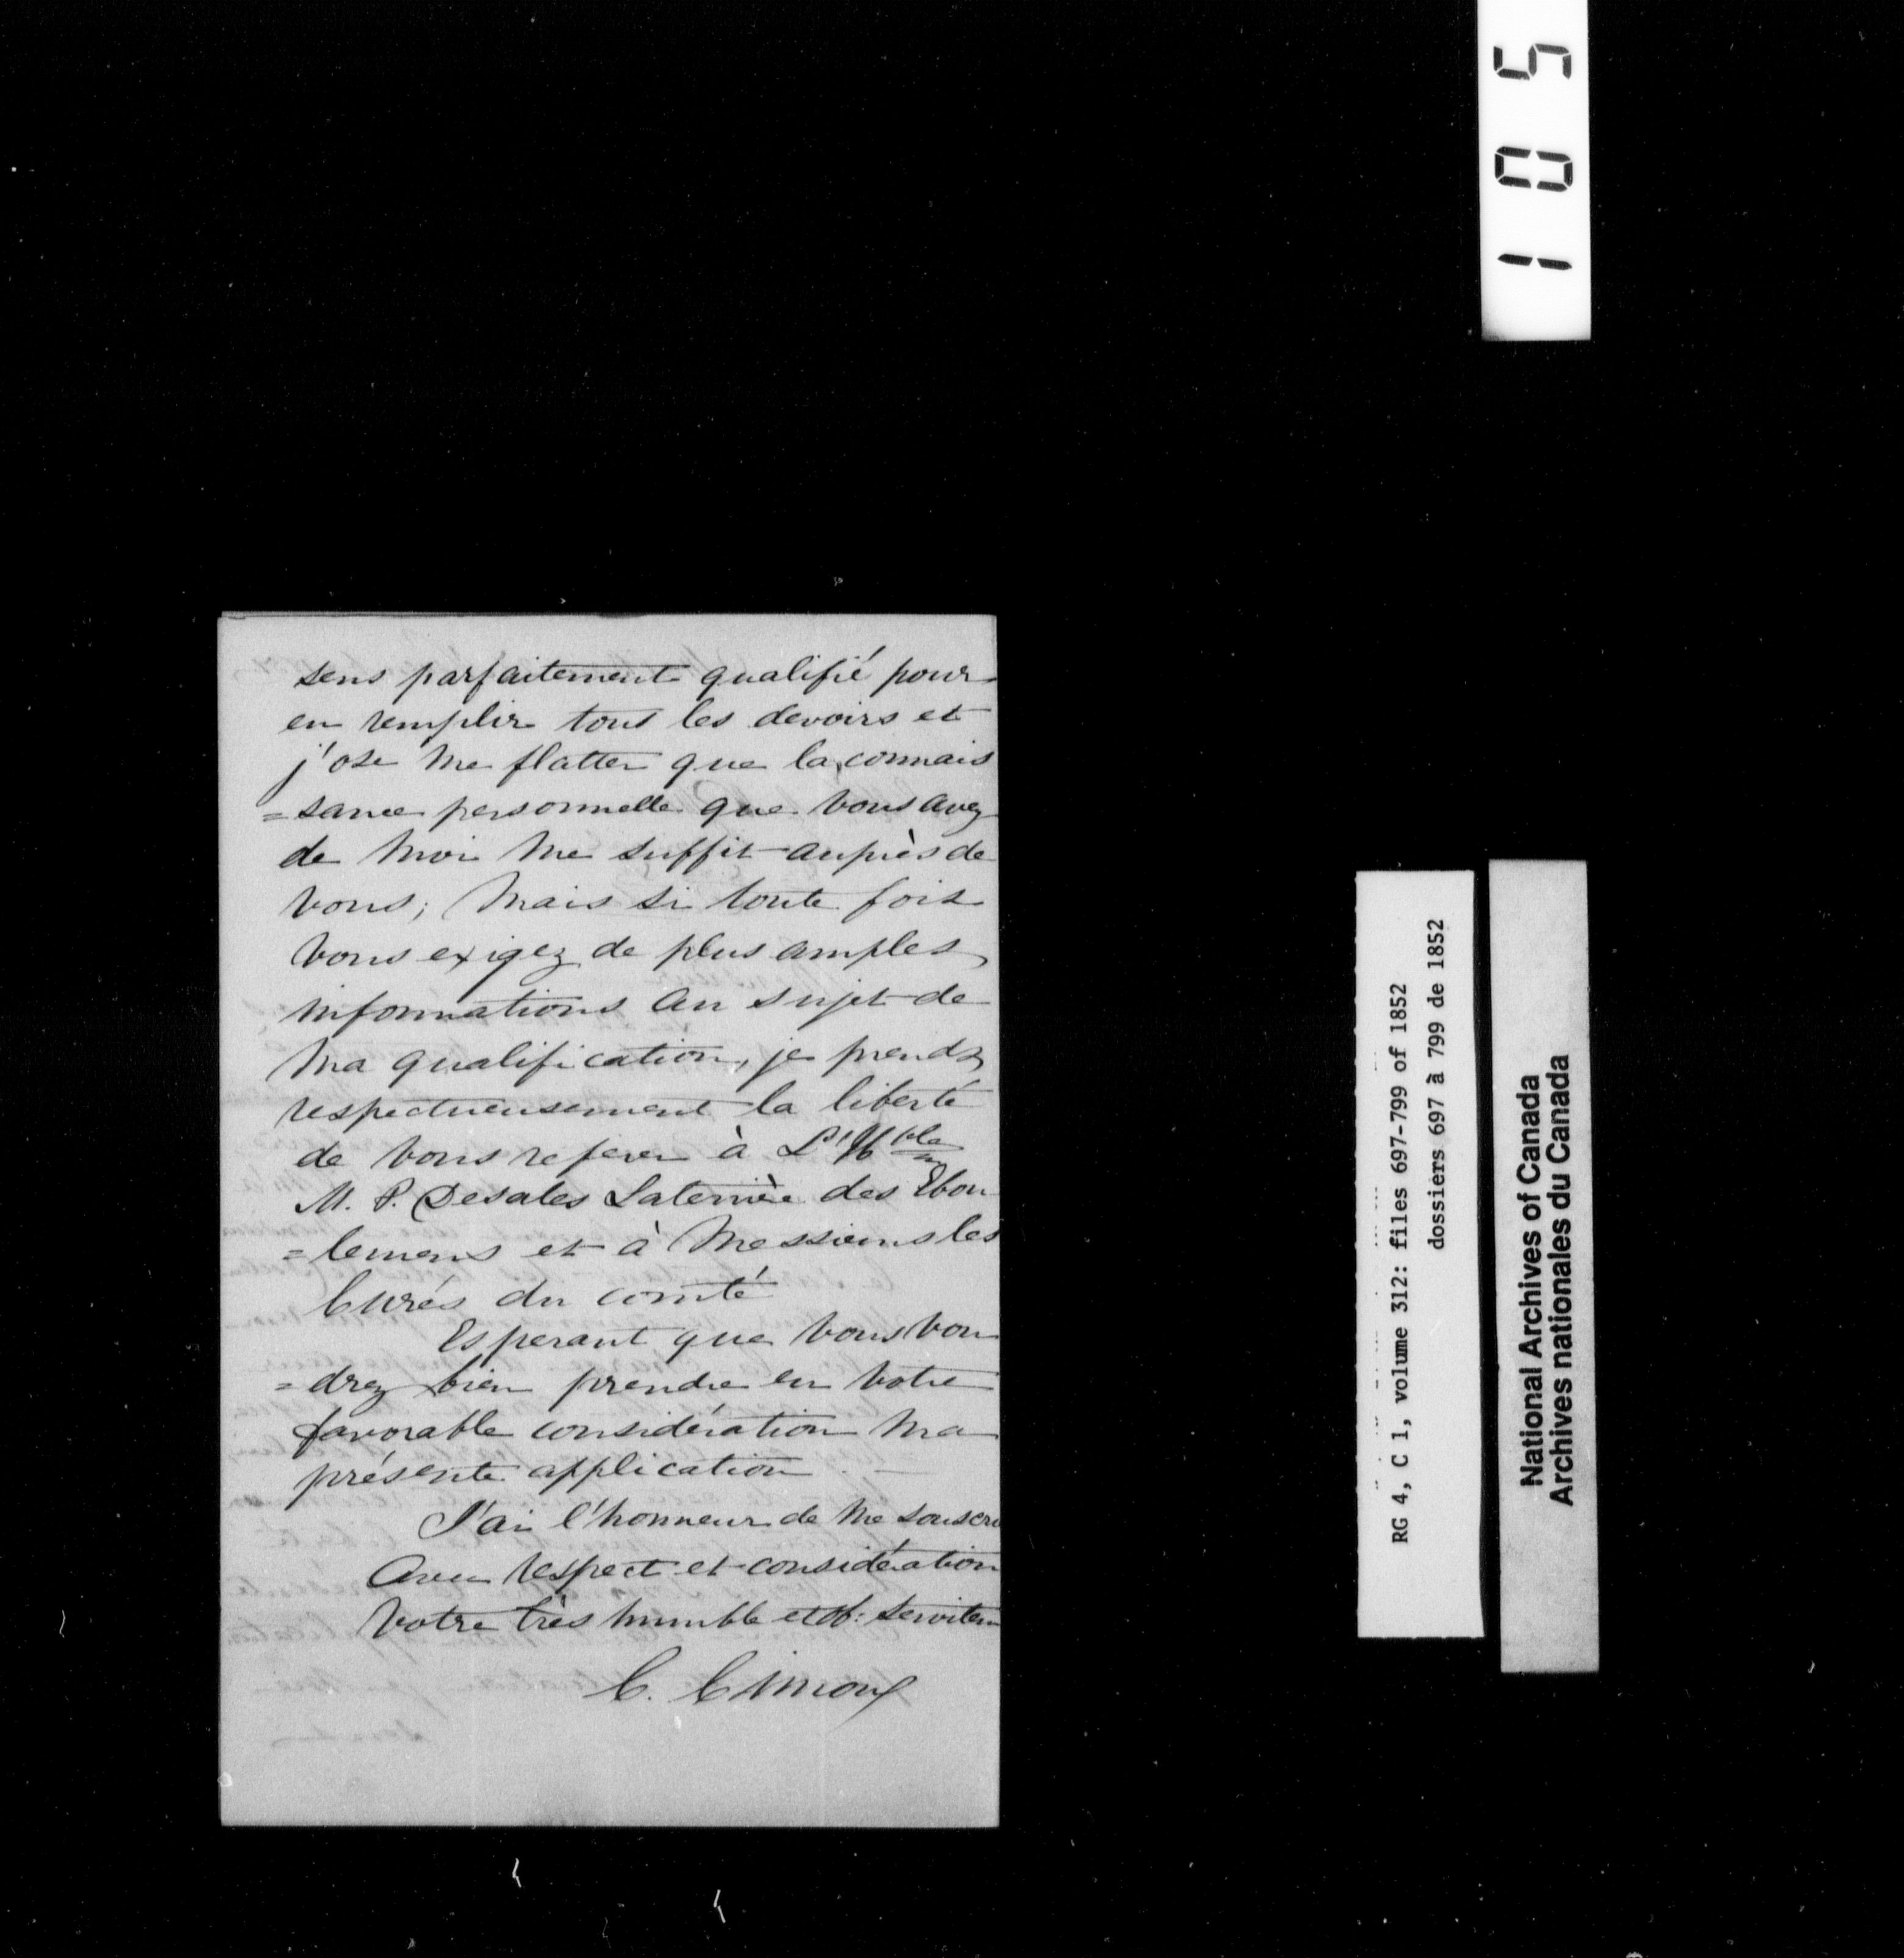 105
sens parfaitement qualifié pour
en remplir tous les devoirs et
j'ose me flatter que la connais
=sance personnelle que vous avez
de moi me suffit auprès de
vous; mais si toute fois
vous exigez de plus amples
informations au sujet de
ma qualification, je prends
respectueusement la liberté
de vous referer à L'Hble
M. P. Desales Laterrière des Ebou
=lemens et à Messieurs les
Curés du comté
Esperant que vous vou
=drez bien prendre en votre
favorable considération ma
présente application. —
J'ai l'honneur de me souscri
Avec respect et considération
Votre très humble et Ob: Serviteur
C. Cimon
RG 4, C 1, volume 312: files 697-799 of 1852
dossiers 697 à 799 de 1852
National Archives of Canada
Archives nationales du Canada